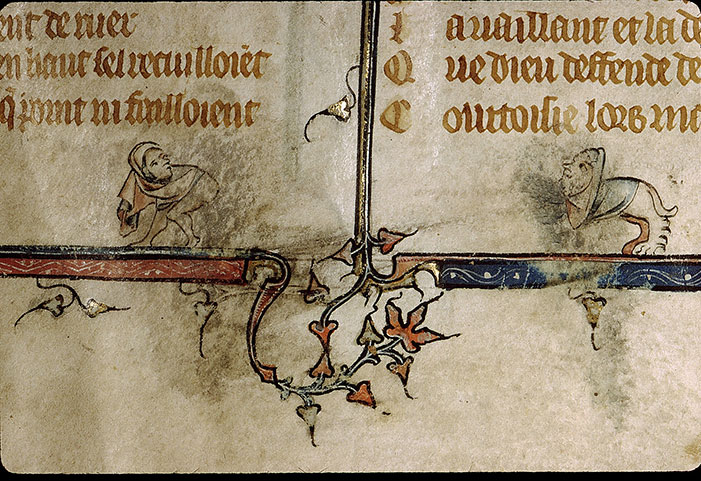 ent de ruer
en haut sel recuilloiēt
q̄ point ni failloient
I auaillant et la de
Q ue dieu deffende de
C ourtoisie lors